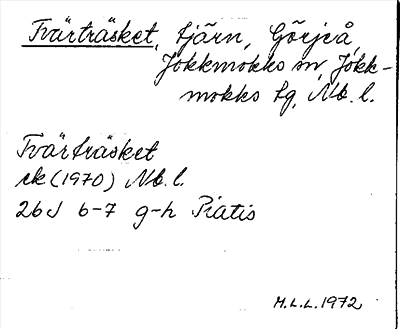 Tvärträsket, tjärn, Görjeå,
Jokkmokks sn, Jokk-
mokks tg, Nb. l.
Tvärträsket
rk (1970) Nb. l.
26J 6-7 g-h Piatis
M.L.L. 1972